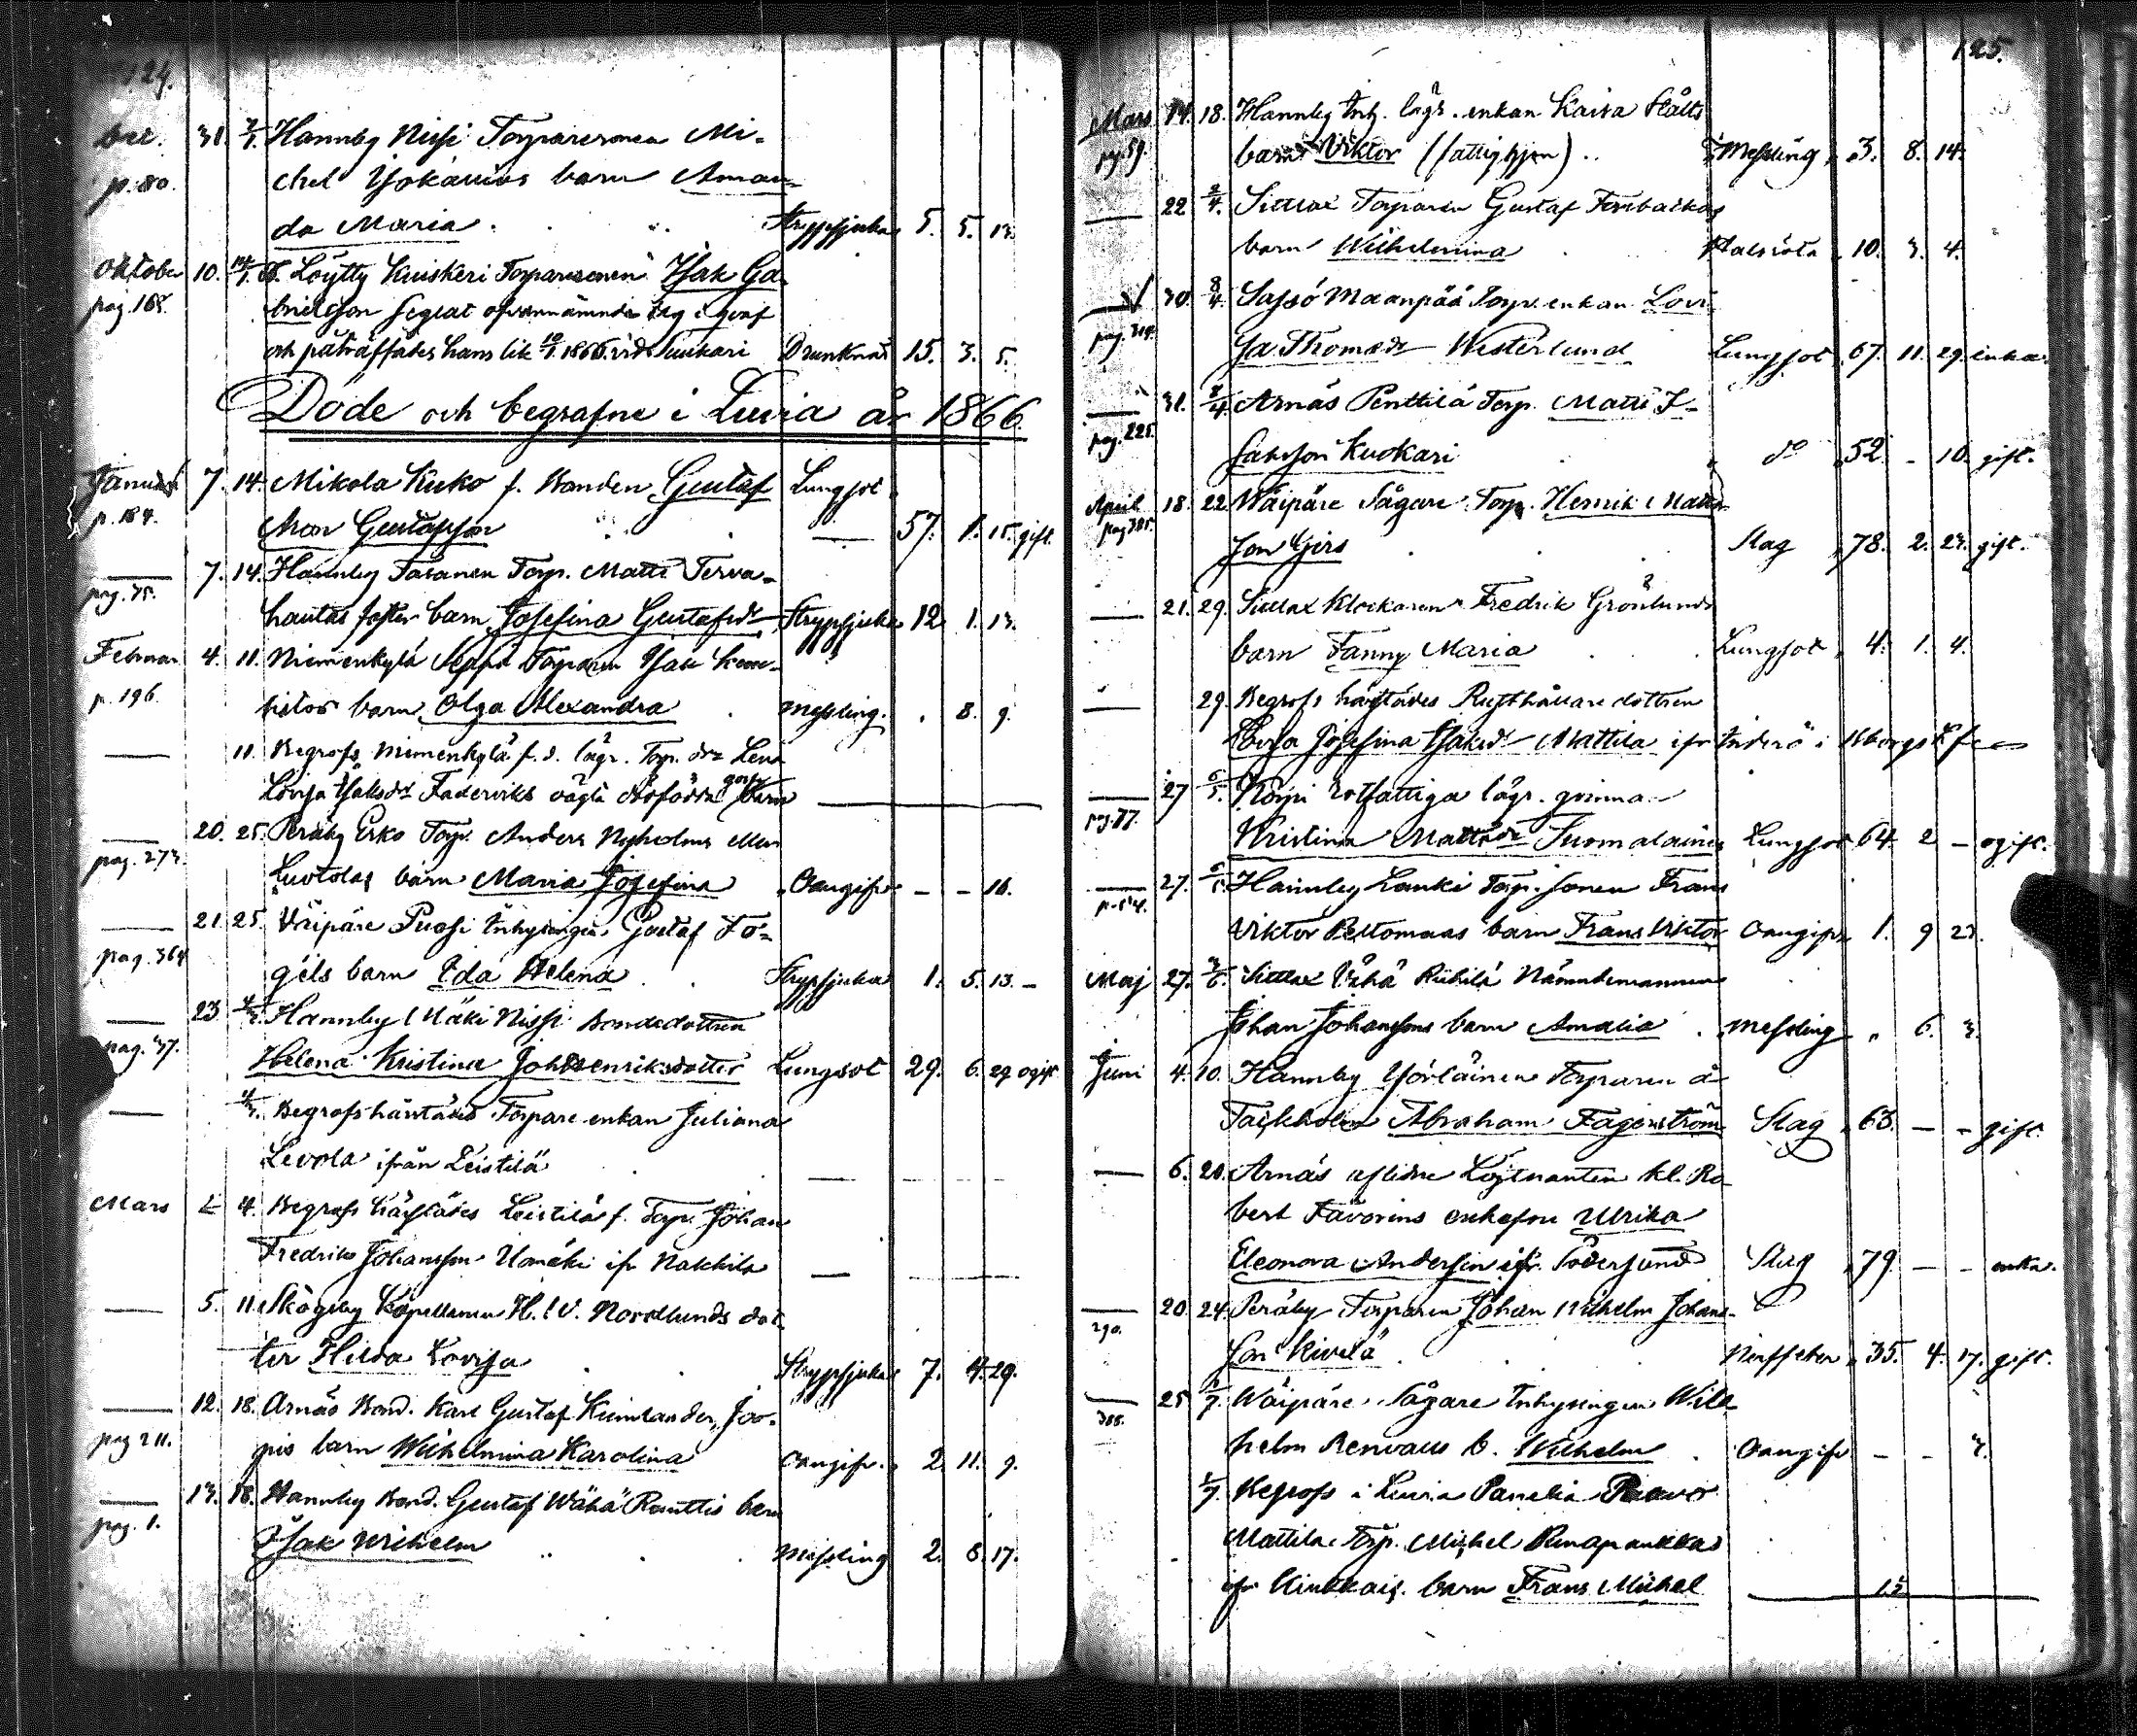 124.
Dec. 31. 7/1. Hannby Nissi Torparesonen Mi-
p. 80. chel Yjökanius barn Aman-
da Maria Strypsjuka 5. 5. 13.
Oktober 10. 14/1. Löytty Kuiskeri Torparesonen Isak Ga-
pag. 168. brielsson seglat ofvannämnde dag i qvaf
och påträffades hans lik 10/1. 1866. vid Tuukari Drunknad 15. 3. 5.
Döde och begrafne i Luvia år 1866.
Januari 7. 14. Mikola Kuko f. Bonden Gustaf Lungsot
p. 184. Gustafsson 57. 1. 15. gift.
7. 14. Hannby Torp. Matts Terva-
pag. 75. hautas foster barn Josefina Gustafsdr Strypsjuka 12. 1. 13.
Februari 4. 11. Niemenkylä Seppä Torparen Isak
p. 196. barn Olga Alexandra Messling. 8. 9.
11. Begrofs Niemenkylä f. d. lägr. Torp. dr Lena
Lovisa Isaksdr Faderviks oägta dödfödda gosse barn
20. 25. Peräby Erko Torp. Anders Nyholms eller
pag. 273. Luotolas barn Maria Josefina Oangifv. - - 16.
21. 25. Väipäre Puosi Inhysingen Gustaf Fo-
pag. 364. gels barn Eda Helena Strypsjuka 1. 5. 13. -
23. 4/3. Hannby Mäki Nissi Bondedottren
pag. 37. Helena Kristina Joh.Henriksdotter Lungsot 29. 6. 29. ogift
4/3. Begrofs härstädes Torpare enkan Juliana
Levola ifrån Leistilä
Mars 4. Begrofs härstädes Leistilä f. Torp. Johan
Fredrik Johansson Uomäki ifr. Nakkila
5. 11. Skogsby Kapellanen H. W. Nordlunds dot-
ter Hilda Lovisa Strypsjuka 7. 4. 29.
12. 18. Arnäs Bond. Karl Gustaf Joo-
pag 211. pis barn Wilhelmina Karolina Oangifv. 2. 11. 9.
13. 18. Hannby Bond. Gustaf Wähä Ranttis barn
pag. 1. Isak Wilhelm Messling 2. 8. 17.
125.
Mars 14. 18. Hannby Inh. lägr. enkan Kaisa Hålts
pag. 59. barn Viktor (fattighjon) Messling 3. 8. 14.
22. 2/4. Sittlax Torparen Gustaf
barn Wilhelmina Halsröta 10. 3. 4.
30. 8/4. Sassö Maanpää Torp. enkan Lovi-
pag. 314. sa Thomasdr Westerlund Lungsot 67. 11. 29. enka
31. 8/4. Arnäs Penttilä Torp. Matts I-
pag. 225. saksson Kuokari do 52. - 10. gift.
April 18. 22. Wäipäre Sågare Torp. Henrik Matts-
pag 385. son Girs Slag 78. 2. 23. gift.
21. 29. Sittlax Klockaren Fredrik Grönlunds
barn Fanny Maria Lungsot 4. 1. 4.
29. Begrofs härstädes Rusthållare dottren
Lovisa Josefina Isaksdr Mattila ifr Inderö i
27 6/5. Korpi rotfattiga lägr. qvinna
pag. 77. Kristina Mattsdr Suomalainen Lungsot 64. 2 - ogift.
27. 6/5. Hannby Lanki Torp. sonen Frans
Viktor Peltomaas barn Frans Viktor Oangifv. 1. 9 23.
Maj 27. 3/6. Sittlax Vähä Riihilä Nämndemannen
Johan Johanssons barn Amalia Messling 6. 3.
Juni 4. 10. Hannby Torparen å
Tackholm Abraham Fagerström Slag 63. - - gift.
6. 20. Arnäs aflidne Löjtnanten kl. Ro-
bert Favorins enkefru Ulrika
Eleonora Andersin ifr. Södersund Slag 79. - - enka.
20 24. Peräby Torparen Johan Wilhelm Johans-
290. son Kivelä Nerffeber 35. 4. 17. gift.
25 1/7. Wäipäre Sågare Inhysingen Wil-
388. helm Renvalls b. Wilhelm Oangifv - - 3.
1/7. Begrofs i Luvia Panelia Paavo
Mattila Torp. Michel Runapankkas
ifr Kiukais. barn Frans Mikael 15